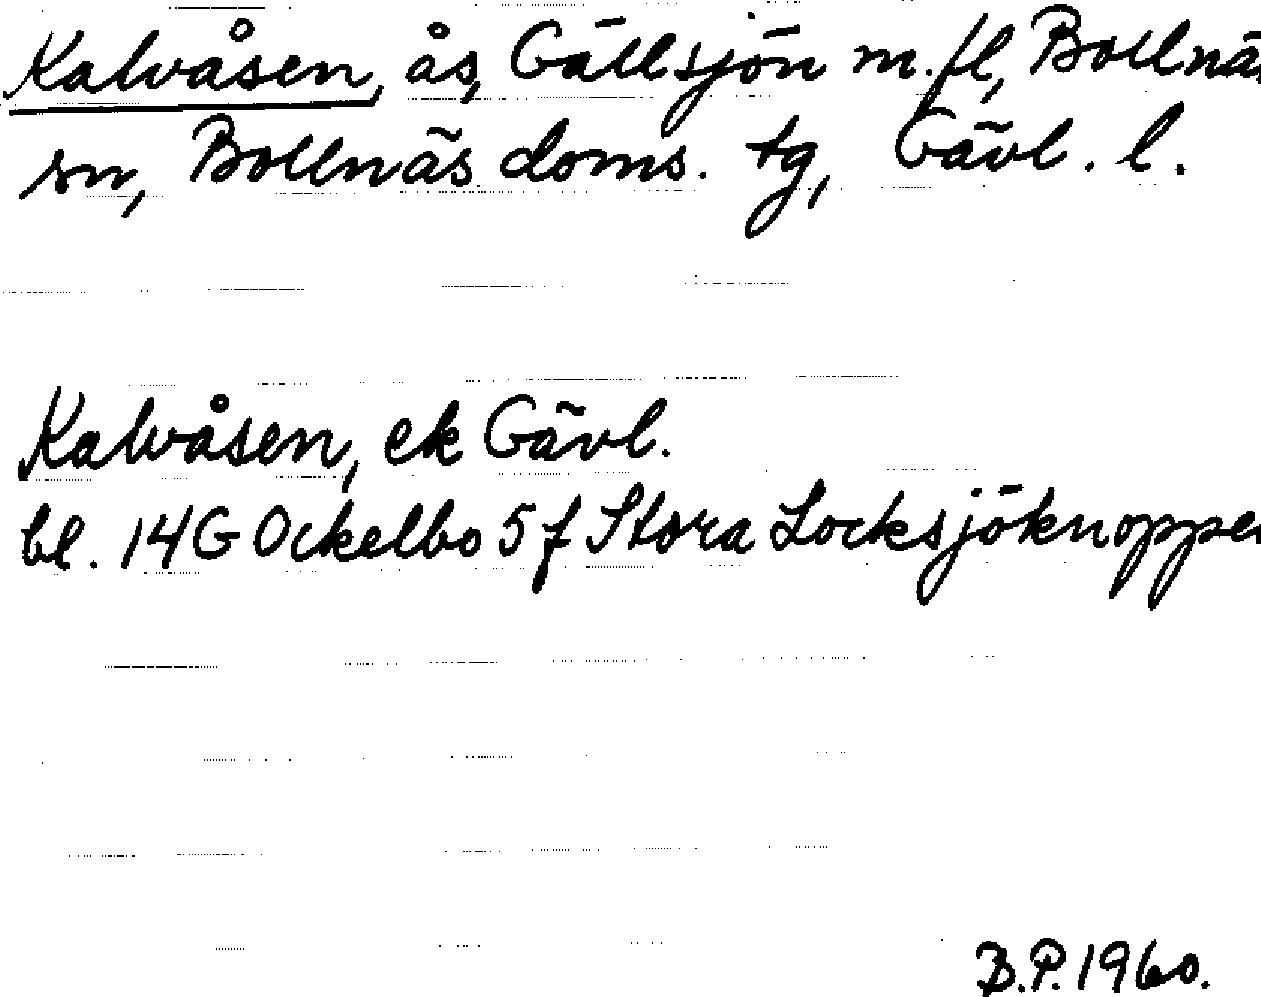 Kalvåsen, ås, Gällsjön m.fl, Bollnäs
sn, Bollnäs doms. tg, Gävl. l.
Kalvåsen, ek Gävl.
bl. 14G Ockelbo 5f Stora Locksjöknoppen
B.P. 1960.